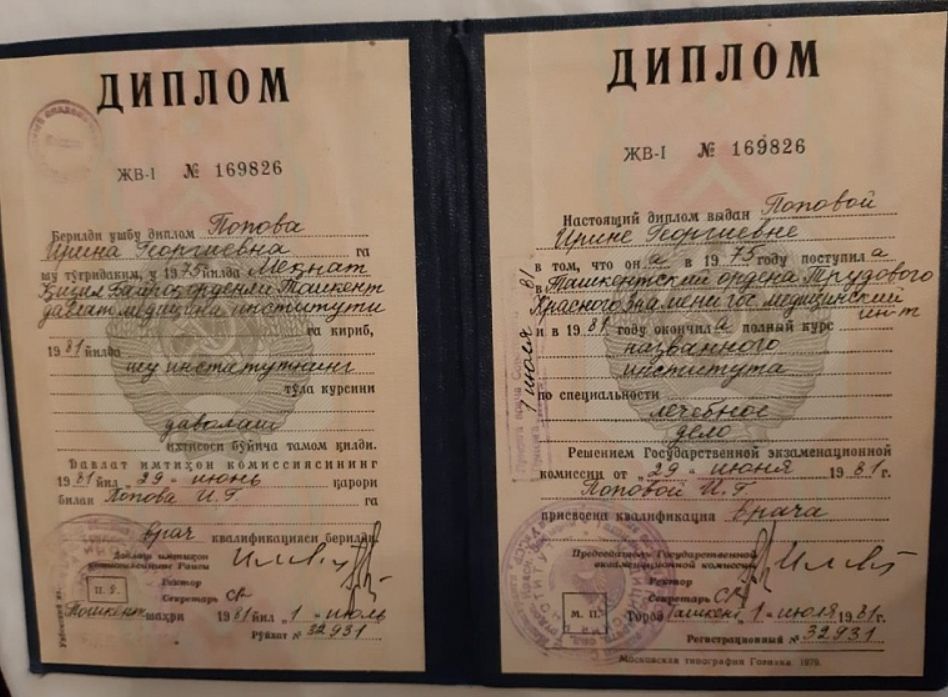 ДИПЛОМ
ЖВ-I № 169826
Берилди ушбу диплом Попова
Ирина Георгиевна га
шу тўғридаким, у 1975 йилда Меҳнат
Қизил Байроқ орденли Тошкент
давлат медицина институти
га кириб,
1981 йилда
шу институтнинг
тўла курсини
даволаш
ихтисоси бўйича тамом қилди.
Давлат имтиҳон комиссиясининг
1981 йил „29" июнь қарори
билан Попова И.Г. га
врач квалификацияси берилди.
Давлат имтиҳон
комиссиясининг Раиси
Ректор
Секретарь
Тошкент шаҳри 1981 йил „1" июль
Рўйхат № 32931
ДИПЛОМ
ЖВ-I № 169826
Настоящий диплом выдан Поповой
Ирине Георгиевне
в том, что она в 1975 году поступила
в Ташкентский ордена Трудового
Красного Знамени гос. медицинский
ин-т
и в 1981 году окончила полный курс
названного
института
по специальности
лечебное
дело
Решением Государственной экзаменационной
комиссии от „29" июня 1981 г.
Поповой И.Г.
присвоена квалификация врача
Председатель Государственной
экзаменационной комиссии
Ректор
Секретарь
М. П.
Город Ташкент, 1 июля 1981 г.
Регистрационный № 32931
Московская типография Гознака. 1979.